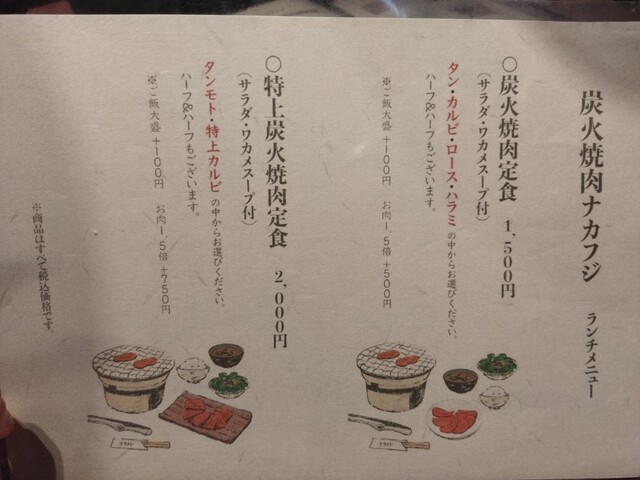 炭火焼肉ナカフジ ランチメニュー
○炭火焼肉定食 1,500円
(サラダ・ワカメスープ付)
タン・カルビ・ロース・ハラミの中からお選びください。
ハーフ&ハーフもございます。
※ご飯大盛+100円 お肉1.5倍+500円
○特上炭火焼肉定食 2,000円
(サラダ・ワカメスープ付)
タンモト・特上カルビの中からお選びください。
ハーフ&ハーフもございます。
※ご飯大盛+100円 お肉1.5倍+750円
※商品はすべて税込価格です。